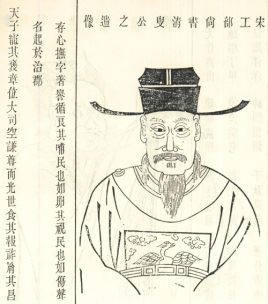 宋工部尚書清叟公之遺像
存心撫字著譽循良其哺民也如卵其視民也如傷聲
名起於治郡
天子寵其褒章位大司空謙尊而光世食其報祚其昌